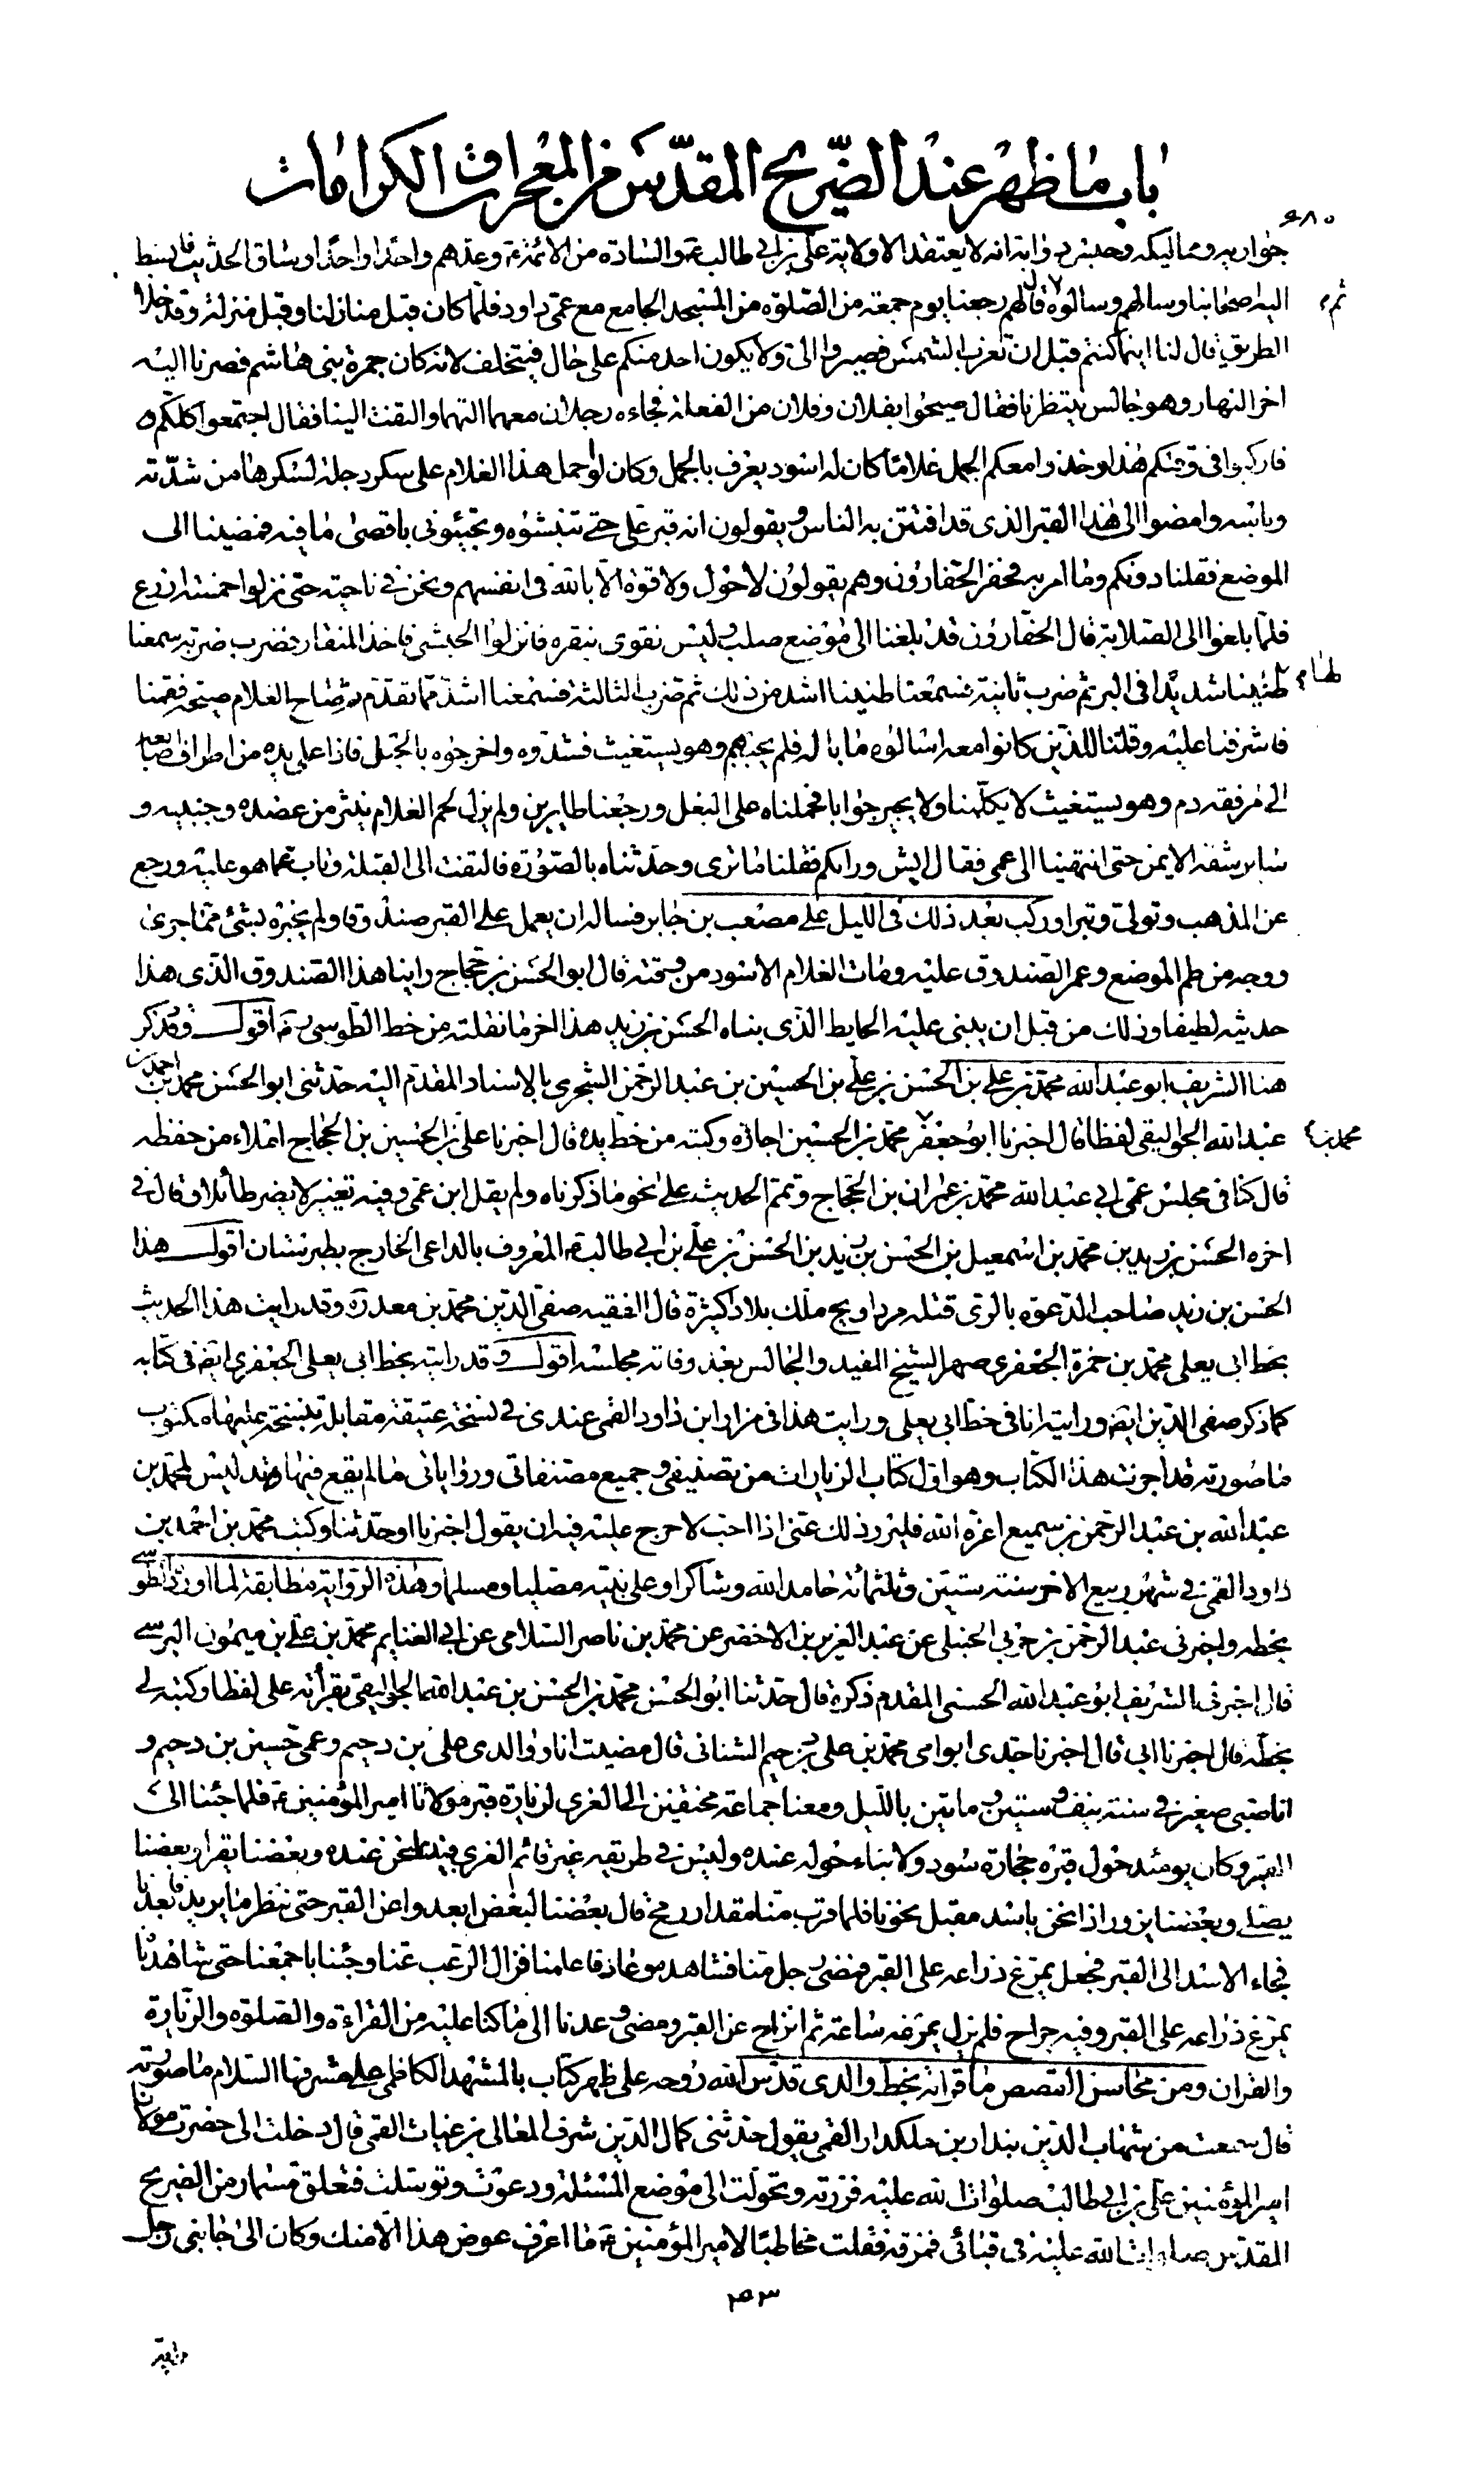 باب ما ظهر عند الضّريح المقدّس من المعجزات و الكرامات
٦٨٠
جواريه ومماليكه وحبس دوابه انه لا يعتقد الا ولاية علي بن ابي طالب ع والسادة من الائمة ع وعدهم واحدا واحدا وساق الحديث فانبسط
اليه اصحابنا وسالهم وسالوه قال لهم رجعنا يوم جمعة من الصلوة من المسجد الجامع مع عمي داود فلما كان قبل منازلنا وقبل منزله وقد خلا
ثم
الطريق قال لنا اينما كنتم قبل ان تغرب الشمس فصيروا الي ولا يكون احد منكم على حال فيتخلف لانه كان جمرة بني هاشم فصرنا اليه
اخر النهار وهو جالس ينتظرنا فقال صيحوا بفلان وفلان من الفعلة فجاءه رجلان معهما التهما والتفت الينا فقال اجتمعوا كلكم
فاركبوا في وقتكم هذا وخذوا معكم الجمل غلاما كان له اسود يعرف بالجمل وكان لو حمل هذا الغلام على سكر دجلة لسكرها من شدته
وباسه وامضوا الى هذا القبر الذي قد افتتن به الناس ويقولون انه قبر علي حتى تنبشوه وتجيئوني باقصى ما فيه فمضينا الى
الموضع فقلنا دونكم وما امر به فحفر الحفارون وهم يقولون لا حول ولا قوة الا بالله في انفسهم ونحن في ناحية حتى نزلوا خمسة اذرع
فلما بلغوا الى الصلابة قال الحفارون قد بلغنا الى موضع صلب وليس نقوى بنقره فانزلوا الحبشي فاخذ المنقار فضرب ضربة سمعنا
لها
طنينا شديدا في البر ثم ضرب ثانية فسمعنا طنينا اشد من ذلك ثم ضرب الثالثة فسمعنا اشد مما تقدم ثم صاح الغلام صيحة فقمنا
فاشرفنا عليه وقلنا للذين كانوا معه اسالوه ما باله فلم يجبهم وهو يستغيث فشدوه واخرجوه بالحبل فاذا على يده من اطراف اصابعه
الى مرفقه دم وهو يستغيث لا يكلمنا ولا يحير جوابا فحملناه على البغل ورجعنا طايرين ولم يزل لحم الغلام ينثر من عضده وجنبيه و
ساير شقه الايمن حتى انتهينا الى عمي فقال ايش وراكم فقلنا ما ترى وحدثناه بالصورة فالتفت الى القبلة وتاب عما هو عليه ورجع
عن المذهب وتولى وتبرا وركب بعد ذلك في الليل على مصعب بن جابر فساله ان يعمل على القبر صندوقا ولم يخبره بشئ مما جرى
ووجه من طم الموضع وعمر الصندوق عليه ومات الغلام الاسود من وقته قال ابو الحسن بن حجاج راينا هذا الصندوق الذي هذا
حديثه لطيفا وذلك من قبل ان يبنى عليه الحايط الذي بناه الحسن بن زيد هذا اخر ما نقلته من خط الطوسي ره اقول وقد ذكر
هنا الشريف ابو عبد الله محمد بن علي بن الحسن بن علي بن الحسين بن عبد الرحمن الشجري بالاسناد المقدم اليه حدثني ابو الحسن محمد بن احمد بن
عبد الله الجواليقي لفظا قال اخبرنا ابو جعفر محمد بن الحسين اجازة وكتبته من خط يده قال اخبرنا علي بن الحسين بن الحجاج املاء من حفظه
محمد بن
قال كنا في مجلس عمي ابي عبد الله محمد بن عمران بن الحجاج وتمم الحديث على نحو ما ذكرناه ولم يقل ابن عمي وفيه تغيير لا يضر طائلا وقال في
اخره الحسن بن زيد بن محمد بن اسمعيل بن الحسن بن زيد بن الحسن بن علي بن ابي طالب ع المعروف بالداعي الخارج بطبرستان اقول هذا
الحسن بن زيد صاحب الدعوة بالري قتله مرداويج ملك بلادا كثيرة قال الفقيه صفي الدين محمد بن معد ره وقد رايت هذا الحديث
بخط ابي يعلى محمد بن حمزة الجعفري صهر الشيخ المفيد والجالس بعد وفاته مجلسه اقول وقد رايته بخط ابي يعلى الجعفري ايضا في كتابه
كما ذكر صفي الدين ايضا ورايته انا في خط ابي يعلى ورايت هذا في مزار ابن داود القمي عندي في نسخة عتيقة مقابلة بنسخة عليها مكتوب
ما صورته قد اجزت هذا الكتاب وهو اول كتاب الزيارات من تصنيفي وجميع مصنفاتي ورواياتي ما لم يقع فيها تدليس لمحمد بن
عبد الله بن عبد الرحمن بن سميع اعزه الله فليرو ذلك عني اذا احب لا حرج عليه فيه ان يقول اخبرنا او حدثنا وكتب محمد بن احمد بن
داود القمي في شهر ربيع الاخر سنة ستين وثلثمائة حامدا لله وشاكرا وعلى نبيه مصليا ومسلما وهذه الرواية مطابقة لما اورده الطوسي
بخطه واخبرني عبد الرحمن بن حربي الحنبلي عن عبد العزيز بن الاخضر عن محمد بن ناصر السلامي عن ابي الغنايم محمد بن علي بن ميمون البرسي
قال اخبرني الشريف ابو عبد الله الحسني المقدم ذكره قال حدثنا ابو الحسن محمد بن الحسن بن عبد الله الجواليقي بقرائته علي لفظا وكتبه لي
بخطه قال اخبرنا ابي قال اخبرنا جدي ابو امي محمد بن علي بن دحيم الشيباني قال مضيت انا ووالدي علي بن دحيم وعمي حسين بن دحيم و
انا صبي صغير في سنة نيف وستين ومايتين بالليل ومعنا جماعة مختفين الى الغري لزيارة قبر مولانا امير المؤمنين ع فلما جئنا الى
القبر وكان يومئذ حول قبره حجارة سود ولا بناء حوله عنده وليس في طريقه غير قائم الغري فبينا نحن عنده وبعضنا يقرا وبعضنا
يصلي وبعضنا يزور اذا نحن باسد مقبل نحونا فلما قرب منا مقدار رمح قال بعضنا لبعض ابعدوا عن القبر حتى ننظر ما يريد فابعدنا
فجاء الاسد الى القبر فجعل يمرغ ذراعه على القبر فمضى رجل منا فشاهده وعاد فاعلمنا فزال الرعب عنا وجئنا باجمعنا حتى شاهدنا
يمرغ ذراعه على القبر وفيه جراح فلم يزل يمرغه ساعة ثم انزاح عن القبر ومضى وعدنا الى ما كنا عليه من القراءة والصلوة والزيارة
والقران ومن محاسن القصص ما قراته بخط والدي قدس الله روحه على ظهر كتاب بالمشهد الكاظمي على مشرفها السلام ما صورته
قال سمعت من شهاب الدين بندار بن ملكدار القمي يقول حدثني كمال الدين شرف المعالي بن غياث القمي قال دخلت الى حضرت مولانا
امير المؤمنين علي بن ابي طالب صلوات الله عليه فزرته وتحولت الى موضع المسئلة ودعوت وتوسلت فتعلق مسمار من الضريح
المقدس صلوات الله عليه في قبائي فمزقه فقلت مخاطبا لامير المؤمنين ع ما اعرف عوض هذا الا منك وكان الى جانبي رجل
٢٥٣